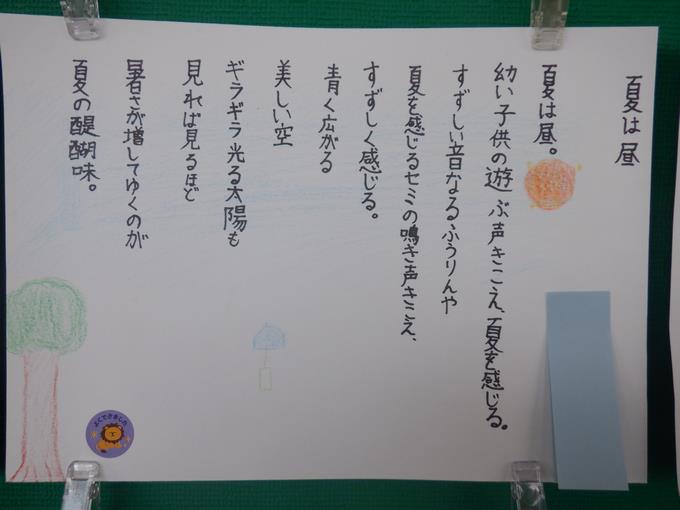 夏は 昼
夏は昼。
幼い子供の遊ぶ声きこえ、夏を感じる。
すずしい音なるふうりんや
夏を感じるセミの鳴き声きこえ、
すずしく感じる。
青く広がる
美しい空
ギラギラ光る太陽も
見れば見るほど
暑さが増してゆくのが
夏の醍醐味。
よくできました